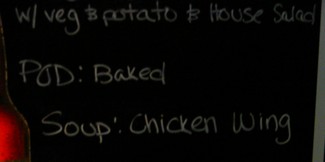 w/ veg & potato & House Salad
POD: Baked
Soup: Chicken Wing